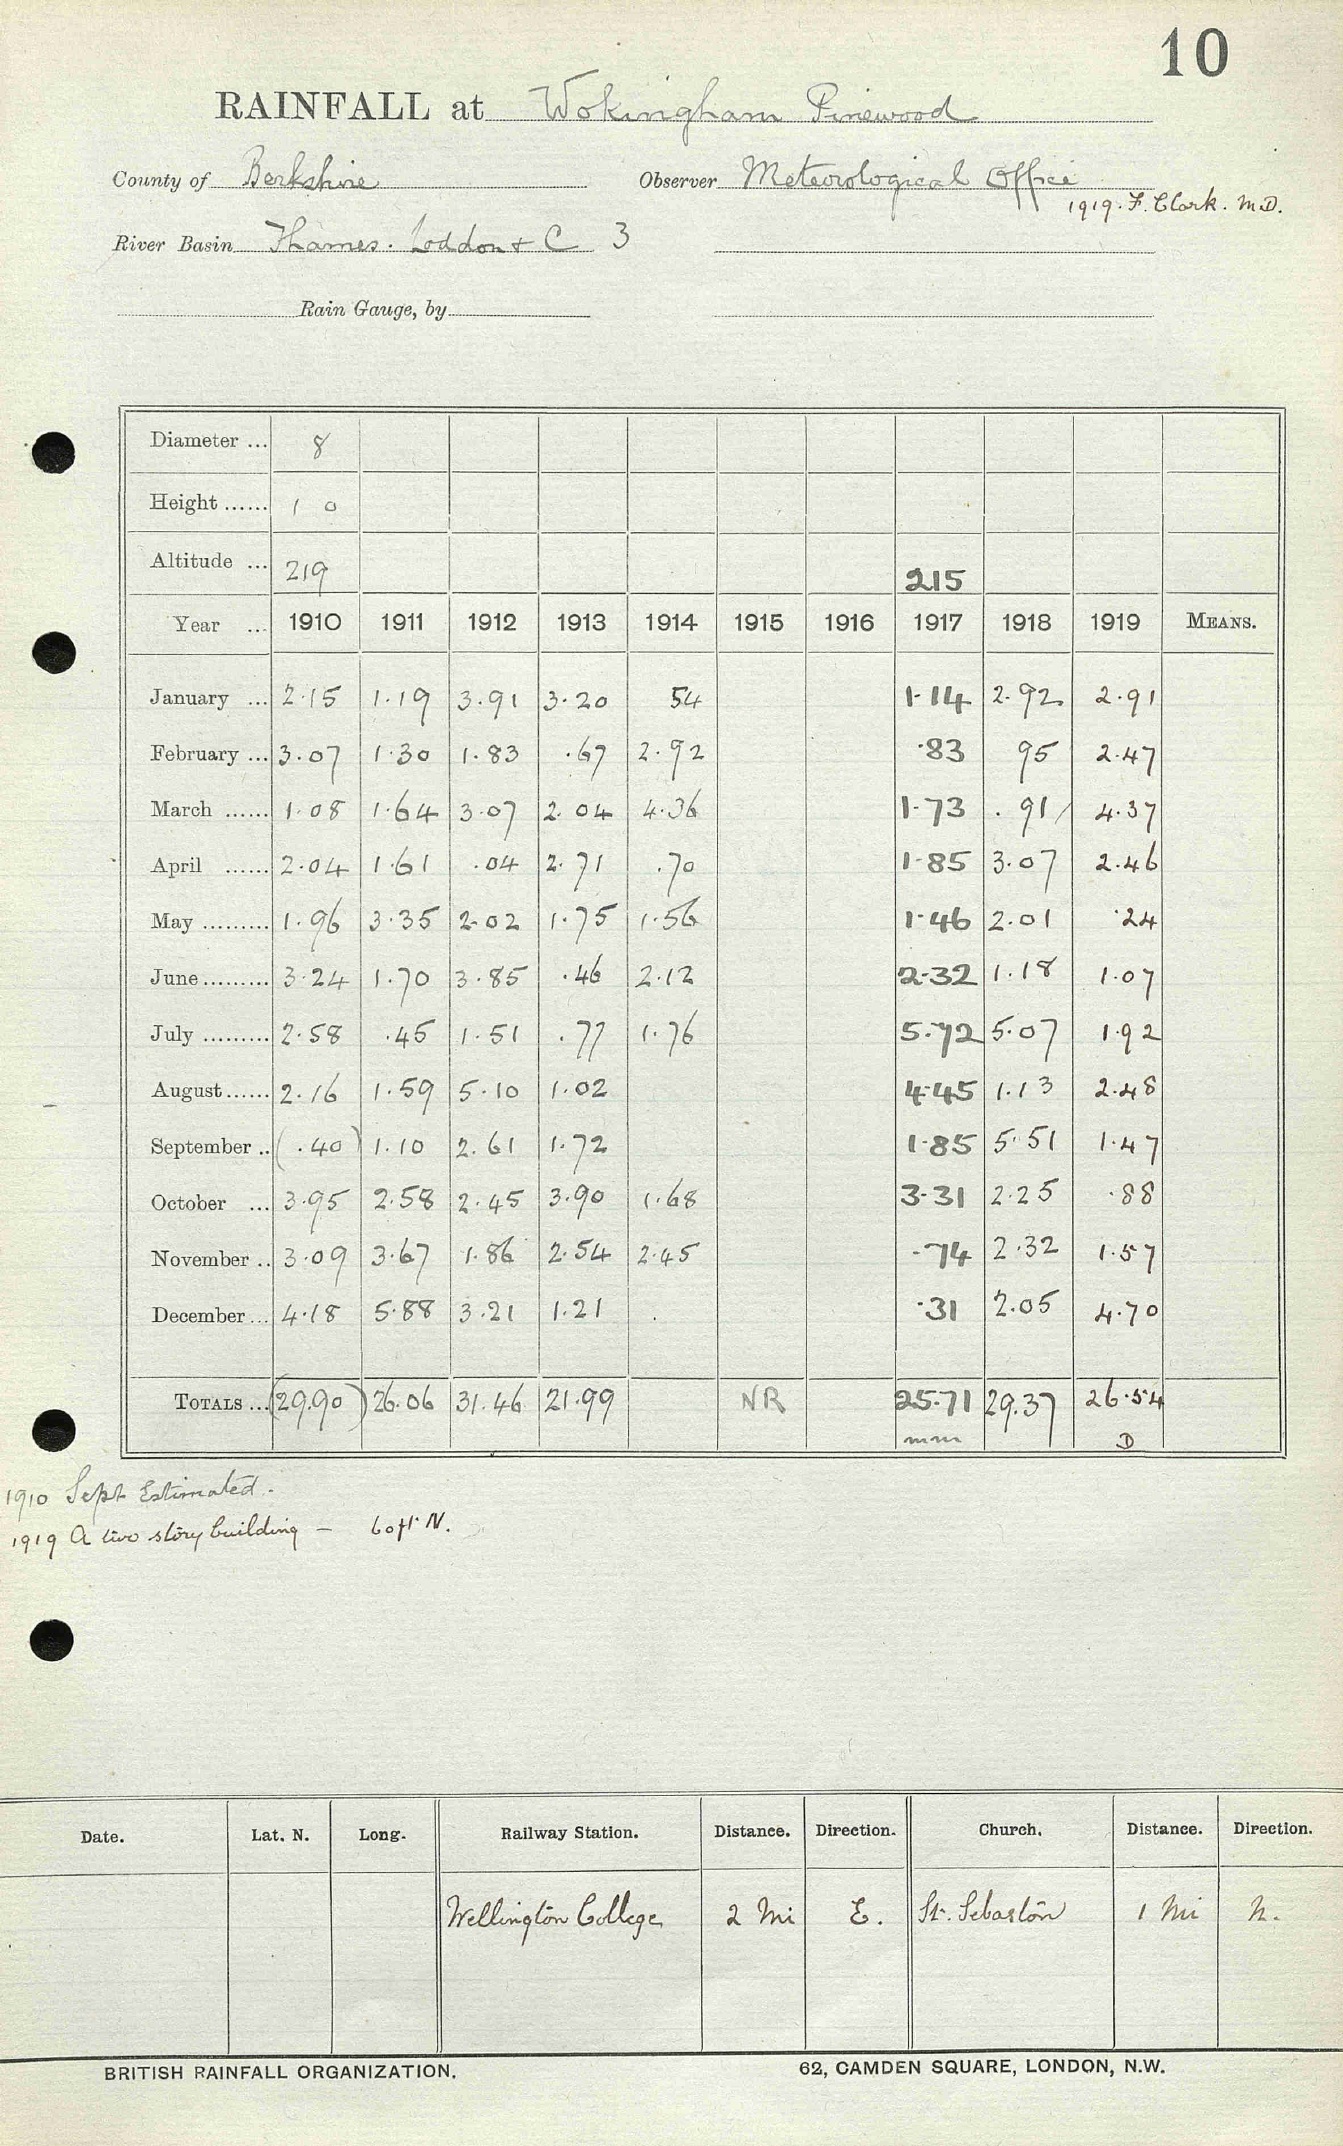 10
RAINFALL at Wokingham Pinewood
County of Berkshire Observer Meteorological Office
1919. F. Clark. M.D.
River Basin Thames. Loddon & C 3
Rain Gauge, by
Diameter ... 8
Height ...... 1 0
Altitude ... 219 215
Year ... 1910 1911 1912 1913 1914 1915 1916 1917 1918 1919 MEANS.
January ... 2.15 1.19 3.91 3.20 54 1.14 2.92 2.91
February ... 3.07 1.30 1.83 .67 2.92 .83 95 2.47
March ...... 1.08 1.64 3.07 2.04 4.36 1.73 .91 4.37
April ...... 2.04 1.61 .04 2.71 .70 1.85 3.07 2.46
May ......... 1.96 3.35 2.02 1.75 1.56 1.46 2.01 .24
June ......... 3.24 1.70 3.85 .46 2.12 2.32 1.18 1.07
July ......... 2.58 .45 1.51 .77 1.76 5.72 5.07 1.92
August ...... 2.16 1.59 5.10 1.02 4.45 1.13 2.48
September .. (.40) 1.10 2.61 1.72 1.85 5.51 1.47
October ... 3.95 2.58 2.45 3.90 1.68 3.31 2.25 .88
November .. 3.09 3.67 1.86 2.54 2.45 .74 2.32 1.57
December ... 4.18 5.88 3.21 1.21 . .31 2.05 4.70
TOTALS ... (29.90) 26.06 31.46 21.99 NR 25.71 29.37 26.54
mm D
1910 Sept Estimated.
1919 A two story building — 60ft N.
Date. Lat. N. Long. Railway Station. Distance. Direction. Church. Distance. Direction.
Wellington College 2 Mi E. St. Sebaston 1 Mi N.
BRITISH RAINFALL ORGANIZATION. 62, CAMDEN SQUARE, LONDON, N.W.